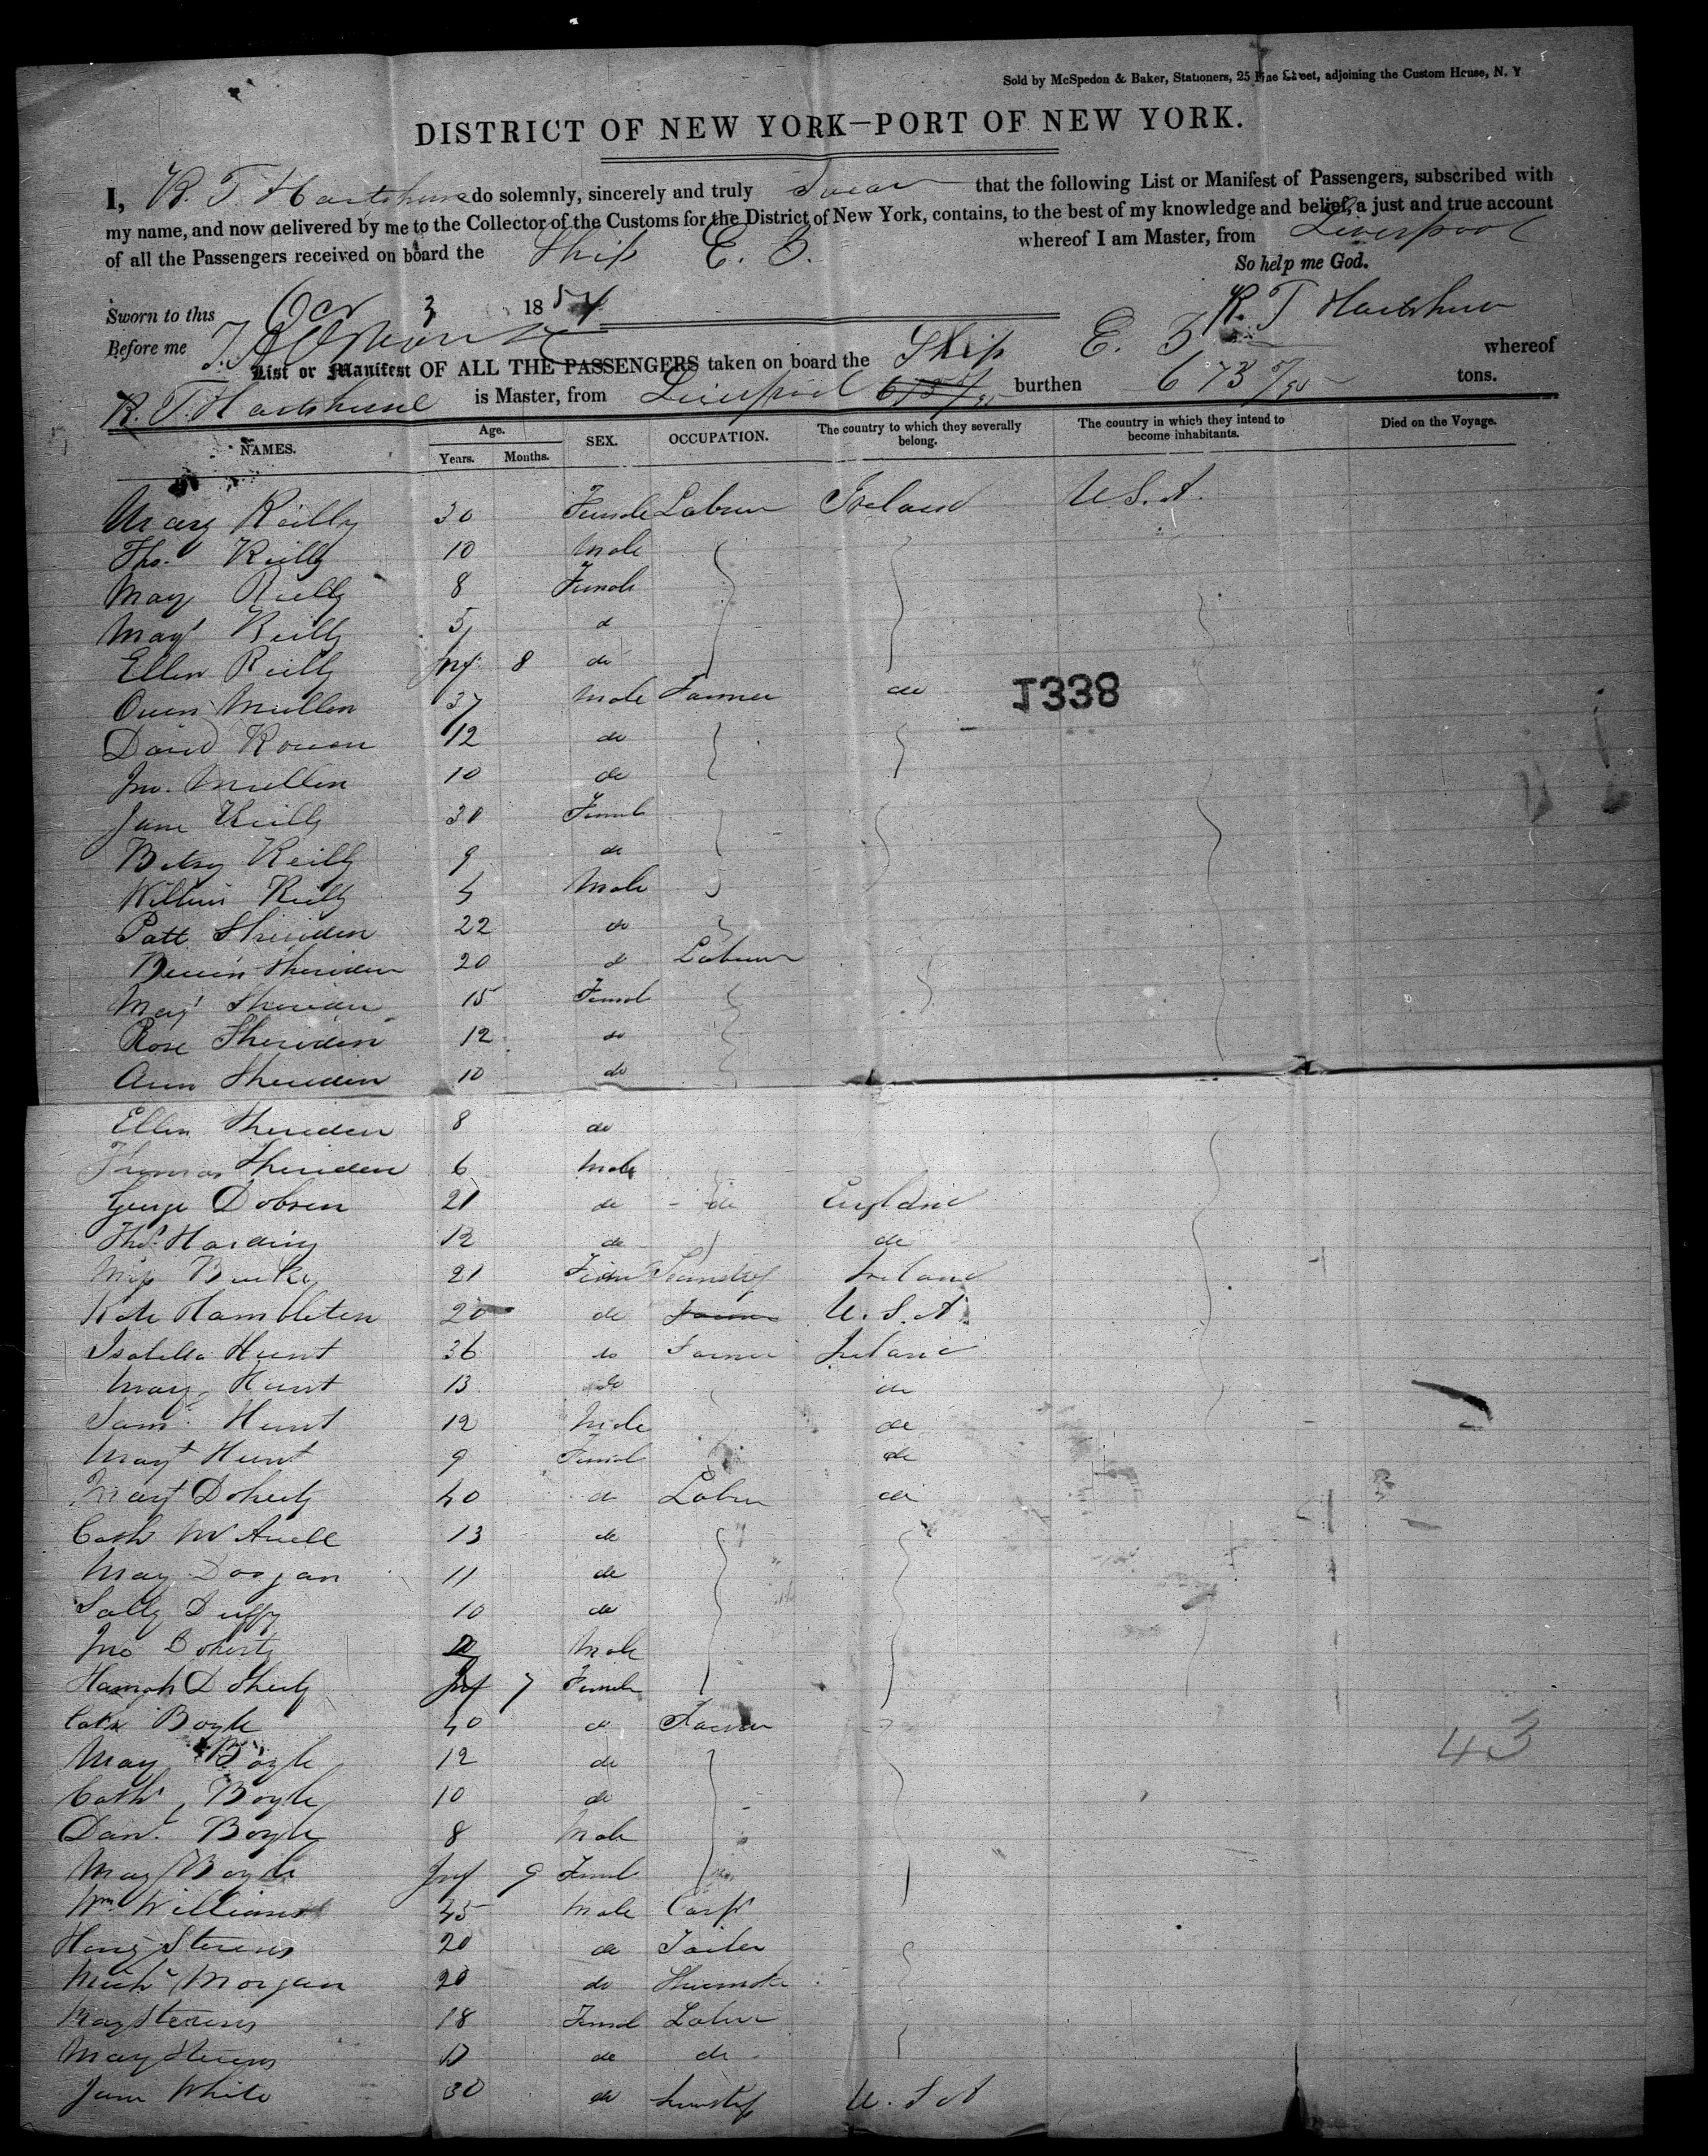 Sold by McSpedon & Baker, Stationers, 25 Pine Street, adjoining the Custom House, N. Y
DISTRICT OF NEW YORK—PORT OF NEW YORK.
I, R. T. Hartshorne do solemnly, sincerely and truly Swear that the following List or Manifest of Passengers, subscribed with
my name, and now delivered by me to the Collector of the Customs for the District of New York, contains, to the best of my knowledge and belief, a just and true account
of all the Passengers received on board the Ship E. B. whereof I am Master, from Liverpool
So help me God.
Sworn to this Oct 3 1854 R. T Hartshorn
Before me
List or Manifest OF ALL THE PASSENGERS taken on board the Ship E. B whereof
R. T. Hartshorne is Master, from Liverpool burthen 673 tons.
NAMES. Age. Years. Months. SEX. OCCUPATION. The country to which they severally belong. The country in which they intend to become inhabitants. Died on the Voyage.
Mary Reilly 30 Female Labour Ireland U.S.A.
Thos. Reilly 10 Male
Mary Reilly 8 Female
Magt Reilly 5 d
Ellen Reilly Inf 8 do
Owen Mullen 37 Male Farmer do
1338
David Rowan 12 do
Jno. Mullen 10 do
Jane Reilly 30 Femal
Betsy Reilly 9 do
William Reilly 4 Male
Patt Sheriden 22 do
Sheriden 20 d Labour
Magt Sheriden 15 Femal
Rose Sheriden 12 do
Ann Sheriden 10 do
Ellen Sheriden 8 do
Thomas Sheriden 6 Male
George Dobson 21 do do England
Thos. Harding 12 do do
Miss Burke 21 Ireland
Kate Hambleten 20 do Farmer U.S.A.
Isabella Hunt 36 do Farmer Ireland
Mary Hunt 13 do do
Saml. Hunt 12 Male do
Magt Hunt 9 Femal do
Magt Doherty 40 d Labur do
Cath 13 de
Mary Doogan 11 de
Sally Duffy 10 do
Jno Doherty Male
Hannah Doherty Inf 7 Female
Cath Boyle 40 do Farmer
Mary Boyle 12 do
Cath Boyle 10 do
Danl. Boyle 8 Male
43
Mary Boyle Inf 9 Femal
Wm. Williams 45 Male Carpt
Henry Stevens 20 do Tailor
Michl Morgan 20 do Shoemaker
Mary Stevens 18 Femal Labur
Mary Stevens do do
Jane White 30 do U.S.A